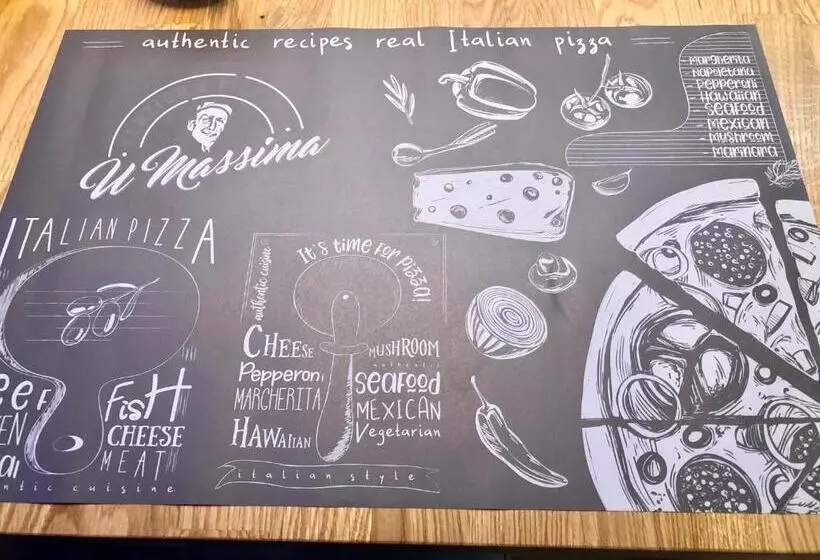 authentic recipes real Italian pizza
Margherita
Napoletana
Pepperoni
Hawaiian
Seafood
Mexican
Mushroom
Marinara
U Massima
ITALIAN PIZZA
FisH
CHEESE
MEAT
cuisine
authentic cuisine
It's time for pizza!
CHEEse
Pepperoni
MARGHERITA
HAWAiiAN
MUSHROOM
authentic
seafood
MEXICAN
Vegetarian
italian style